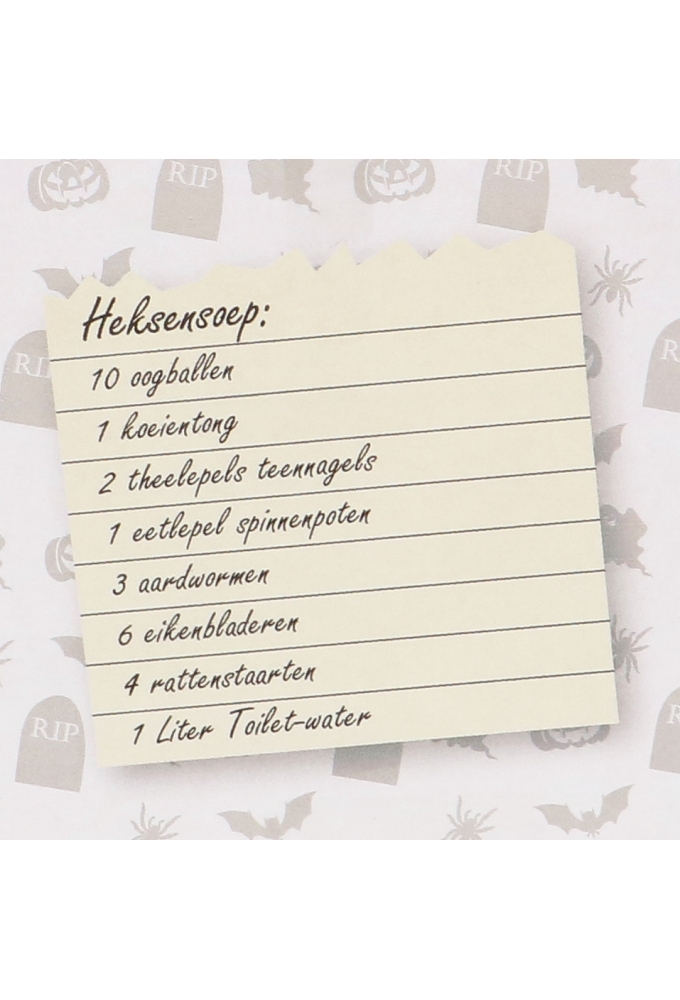 RIP
RIP
Heksensoep:
10 oogballen
1 koeientong
2 theelepels teennagels
1 eetlepel spinnenpoten
3 aardwormen
6 eikenbladeren
4 rattenstaarten
1 Liter Toilet-water
RIP